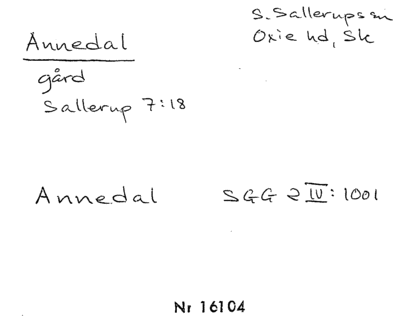 Annedal
S. Sallerups sn
Oxie hd, Sk
gård
Sallerup 7:18
Annedal SGG 2 IV: 1001
Nr 16104